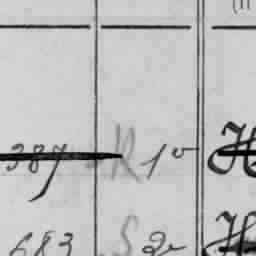 387 R 1v H
683 S 2v H